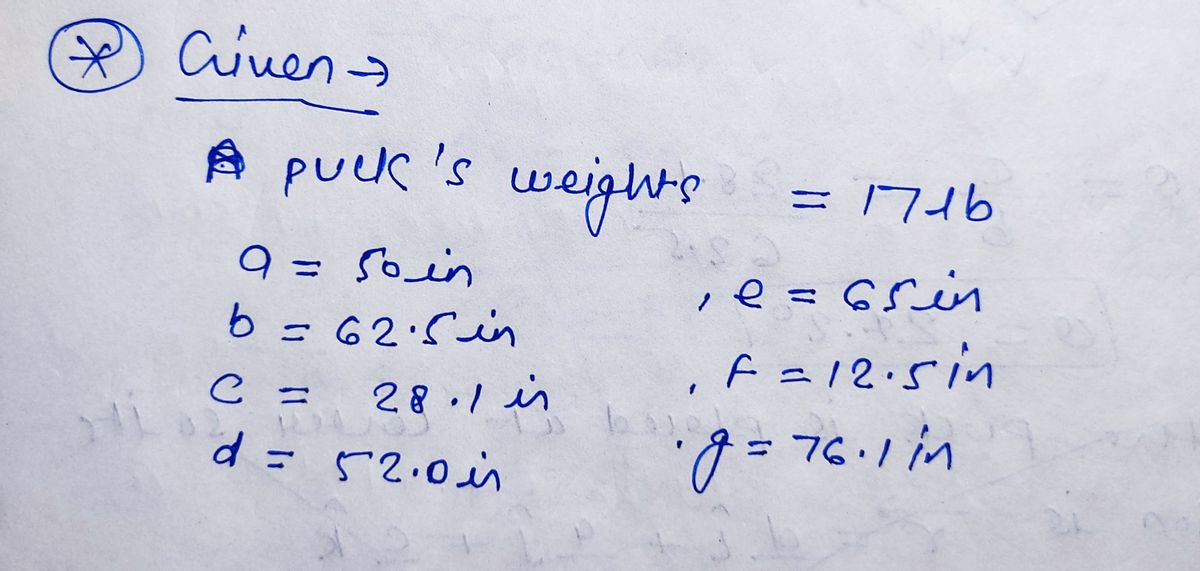 Given →
A puck's weights = 17 lb
a = 50 in , e = 65 in
b = 62.5 in
c = 28.1 in , f = 12.5 in
d = 52.0 in . g = 76.1 in